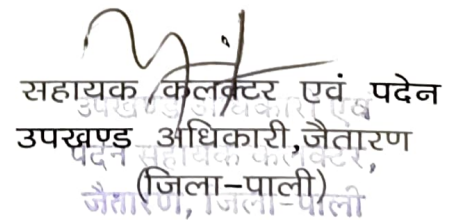 सहायक कलक्टर एवं पदेन
उपखण्ड अधिकारी एवं
उपखण्ड अधिकारी,जैतारण
पदेन सहायक कलक्टर,
(जिला-पाली)
जैतारण, जिला-पाली